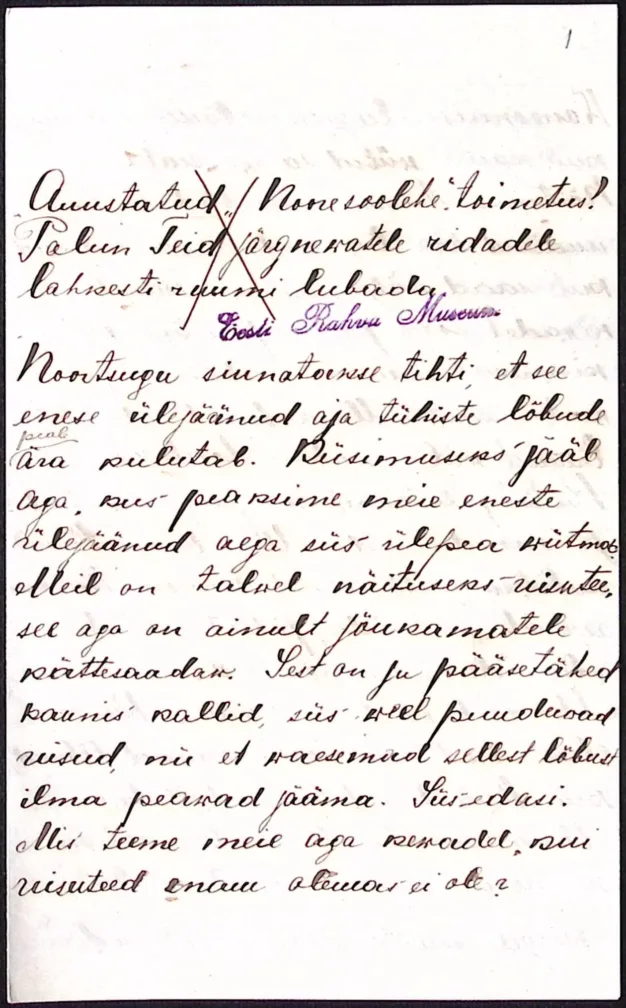 1
Auustatud „Noresoolehe" toimetus!
Palun Teid järgnewatele ridadele
lahkesti ruumi lubada.
Eesti Rahva Museum.
Noortsugu siunatakse tihti, et see
enese ülejäänud aja tühiste lõbude
peab
ära kulutab. Küsimuseks jääb
aga, kus peaksime meie eneste
ülejäänud aega siis ülepea wiitma.
Meil on talwel näituseks uisutee,
see aga on ainult jõukamatele
kättesaadaw. Sest on ju pääsetähed
kaunis kallid, siis weel puuduwad
uisud, nii et waesemad sellest lõbust
ilma peawad jääma. Siis edasi.
Mis teeme meie aga kewadel, kui
uisuteed enam olemas ei ole?